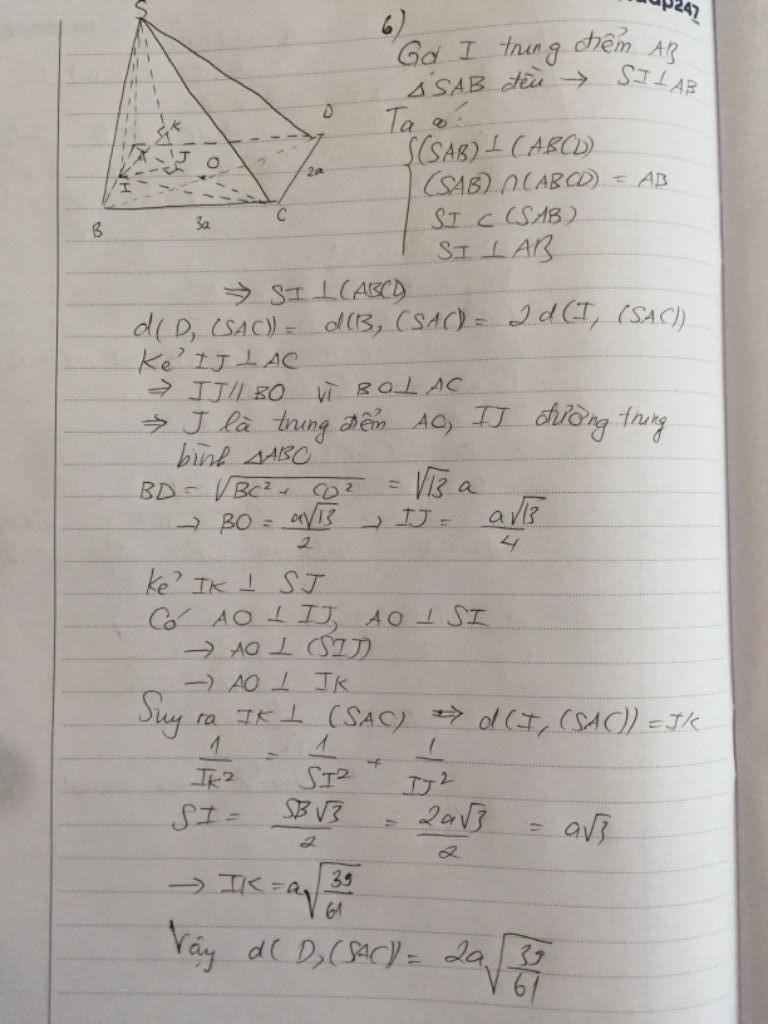 247
6)
Gọi I trung điểm AB
ΔSAB đều → SI ⊥ AB
Ta có:
{(SAB) ⊥ (ABCD)
(SAB) ∩ (ABCD) = AB
SI ⊂ (SAB)
SI ⊥ AB
S
D
K
J
O
A
I
2a
B
3a
C
⇒ SI ⊥ (ABCD)
d(D, (SAC)) = d(B, (SAC)) = 2d(I, (SAC))
Kẻ IJ ⊥ AC
⇒ IJ // BO vì BO ⊥ AC
⇒ J là trung điểm AO, IJ đường trung
bình ΔABC
BD = √(BC² + CD²) = √13 a
→ BO = a√13/2 → IJ = a√13/4
Kẻ IK ⊥ SJ
Có AO ⊥ IJ, AO ⊥ SI
→ AO ⊥ (SIJ)
→ AO ⊥ IK
Suy ra IK ⊥ (SAC) ⇒ d(I, (SAC)) = IK
1/IK² = 1/SI² + 1/IJ²
SI = SB√3/2 = 2a√3/2 = a√3
→ IK = a√(39/61)
Vậy d(D, (SAC)) = 2a√(39/61)